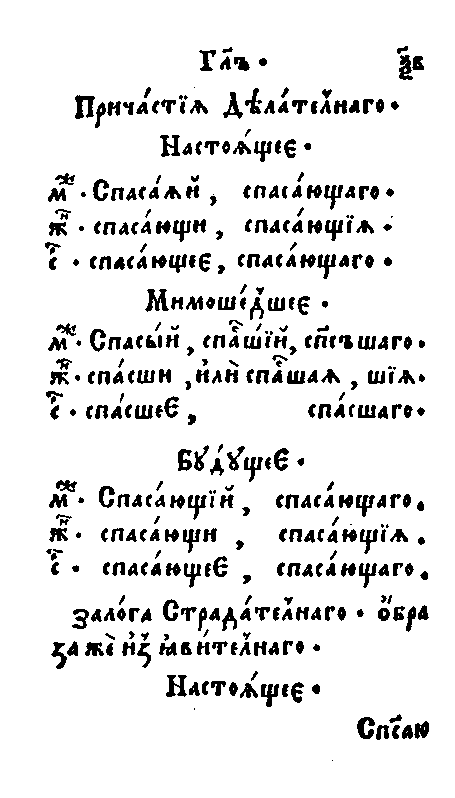 Гл҃ъ · ѯ҃в
Прича́стїѧ Дѣла́телнаго ·
Настоѧ́щеє ·
мꙋ́ж · Спаса́ѧй , спаса́ющаго ·
ж · спаса́ющи , спаса́ющїѧ ·
с · спаса́ющеє , спаса́ющаго ·
Мимоше́дшеє ·
м · Спасы́й , спа́сшїй , сп҃съшаго ·
ж · спа́сши , и҆лѝ спа́сшаѧ , шїѧ ·
с · спа́сшеє , спа́сшаго ·
Бꙋ́дꙋщеє ·
м · Спаса́ющїй , спаса́ющаго .
ж · спаса́ющи , спаса́ющїѧ .
с · спаса́ющеє , спаса́ющаго .
зало́га Страда́телнаго · о҆́бра
за же и҆з̾ѧви́телнаго ·
Настоѧ́щеє ·
Сп҃саю